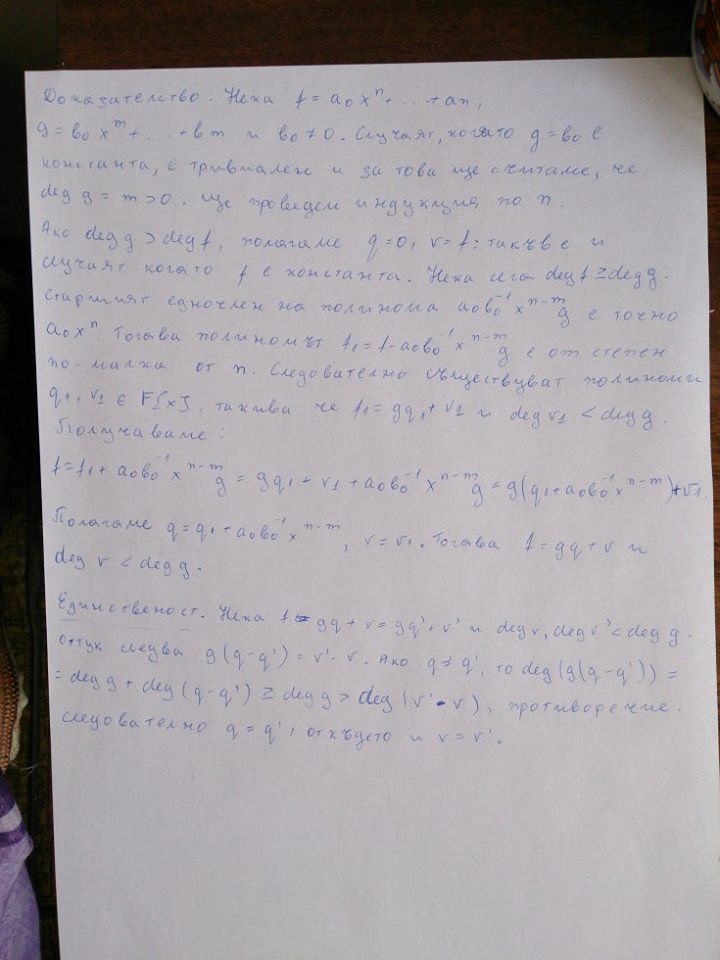 Доказателство: Нека f = a₀xⁿ + ... + aₙ,
g = b₀xᵐ + ... + bₘ и b₀ ≠ 0. Случаят, когато g = b₀ е
константа, е тривиален и за това ще считаме, че
deg g = m > 0. Ще проведем индукция по n.
Ако deg g > deg f, полагаме q = 0, v = f: такъв е и
случаят когато f е константа. Нека сега deg f ≥ deg g.
Старшият едночлен на полинома a₀b₀⁻¹xⁿ⁻ᵐg е точно
a₀xⁿ. Тогава полиномът f₁ = f - a₀b₀⁻¹xⁿ⁻ᵐg е от степен
по-малка от n. Следователно съществуват полиноми
q₁, v₁ ∈ F[x], такива че f₁ = gq₁ + v₁ и deg v₁ < deg g.
Получаваме:
f = f₁ + a₀b₀⁻¹xⁿ⁻ᵐg = gq₁ + v₁ + a₀b₀⁻¹xⁿ⁻ᵐg = g(q₁ + a₀b₀⁻¹xⁿ⁻ᵐ) + v₁.
Полагаме q = q₁ + a₀b₀⁻¹xⁿ⁻ᵐ, v = v₁. Тогава f = gq + v и
deg v < deg g.
Единственост. Нека f = gq + v = gq' + v' и deg v, deg v' < deg g.
Оттук следва g(q - q') = v' - v. Ако q ≠ q', то deg(g(q - q')) =
= deg g + deg(q - q') ≥ deg g > deg(v' - v), противоречие.
следователно q = q', откъдето и v = v'.